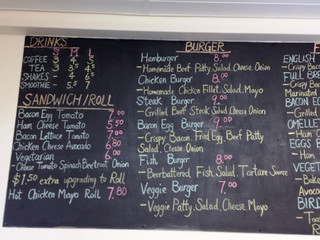 DRINKS
S M L
COFFEE 3 4 5
TEA 3 3.5 4.5
SHAKES - 4 6.5
SMOOTHIE - 5.5 7
SANDWICH/ROLL
Bacon Egg Tomato 7.00
Ham Cheese Tomato 5.50
Bacon Lettuce Tomato 7.00
Chicken Cheese Avocado 6.80
Vegetarian 6.00
- Cheese Tomato Spinach Beetroot Onion
$1.50 extra upgrading to Roll
Hot Chicken Mayo Roll 7.80
BURGER
Hamburger 8.00
- Homemade Beef Patty Salad Cheese Onion
Chicken Burger 8.00
- Homemade Chicken Fillet, Salad, Mayo
Steak Burger 9.00
- Grilled Beef Steak Salad Cheese Onion
Bacon Egg Burger 9.00
- Crispy Bacon Fried Egg Beef Patty
Salad Cheese Onion
Fish Burger 8.00
- Beerbattered Fish, Salad, Tartare Sauce
Veggie Burger 7.00
- Veggie Patty, Salad, Cheese, Mayo
ENGLISH
- Crispy Bacon
FULL BR
- Crispy
Marinated
BACON EG
- Grilled
OMELET
- Ham
EGGS B
- Ham
VEGETA
- Baked
Avocado
BIRD
- Toast